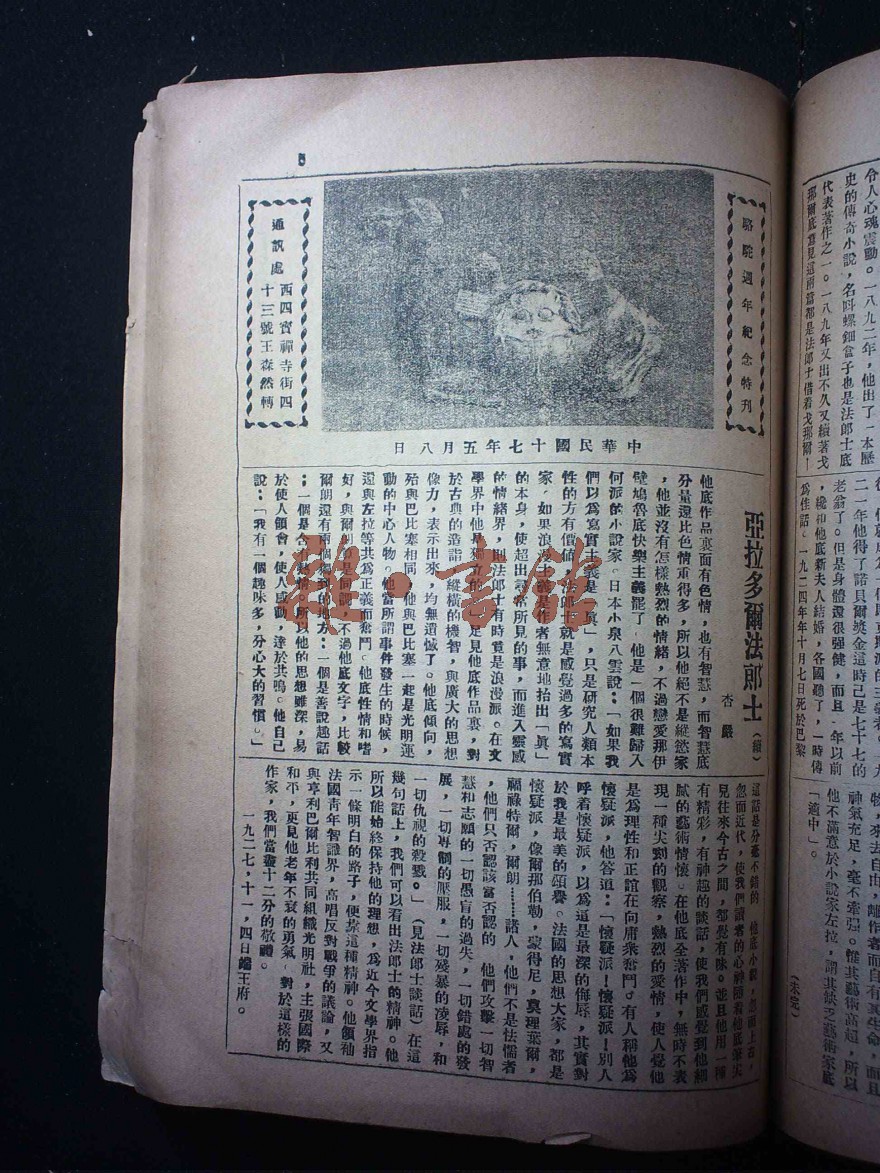 駱駝週年紀念特刊
通訊處
西四寶禪寺街四
十三號王森然轉
中華民國十七年五月八日
亞拉多爾法郎士（續）
杏嚴
他底作品裏面有色情，也有智慧，而智慧底
分量還比色情重得多，所以他絕不是縱慾家
，他並沒有怎樣熱烈的情緒，不過戀愛那伊
壁鳩魯底快樂主義罷了。他是一個很難歸入
何派的小說家。日本小泉八雲說：「如果我
們以爲寫實主義是「眞」，只是研究人類本
性的方有價値，法郎士就是感覺過多的寫實
家。如果浪漫主義是作者無意地抬出「眞」
的本身，使超出尋常所見的事，而進入靈感
的情緒界，則法郎士有時竟是浪漫派。在文
學界中他是獨立的。」足見他底作品裏，對
於古典的造詣，縱橫的機智，與廣大的思想
像力，表示出來，均無遺憾了。他底傾向，
殆與巴比塞相同，他與巴比塞一起是光明運
動的中心人物。他當所謂事件發生的時候，
還與左拉等共爲正義而奮鬥。他底性情和嗜
好，與爾朗也是同調，不過他底文字，比較
爾朗還有兩個獨到的地方：一個是善說趣話
；一個是含有熱情。所以他的思想雖深，易
於使人領會，使人感動，達於共鳴。他自己
說：「我有一個趣味多，分心大的習慣。」
這話是分毫不錯的。他底小說，忽而上古，
忽而近代，使我們讀者的心神隨着他底筆尖
見往來今古之間，都覺有味。並且他用一種
有精彩，有神趣的談話，使我們感覺到他細
膩的藝術情懷。在他底全著作中，無時不表
現一種尖刻的觀察，熱烈的愛情，使人覺他
是爲理性和正誼在向庸衆奮鬥。有人稱他爲
懷疑派，他答道：「懷疑派！懷疑派！別人
呼着懷疑派，以爲這是最深的侮辱，其實對
於我是最美的頌譽。法國的思想大家，都是
懷疑派，像爾那伯勒，蒙得尼，莫理葉爾，
福祿特爾，爾朗……諸人，他們不是怯懦者
，他們只否認該當否認的，他們攻擊一切智
慧和志願的一切愚盲的過失，一切錯處的發
展，一切專制的壓服，一切殘暴的凌辱，和
一切仇視的殺戮。」（見法郎士談話）在這
幾句話上，我們可以看出法郎士的精神。他
所以能始終保持他的理想，爲近今文學界指
示一條明白的路子，便靠這種精神。他領袖
法國青年智識界，高唱反對戰爭的議論，又
與亨利巴爾比利共同組織光明社，主張國際
和平，更見他老年不衰的勇氣。對於這樣的
作家，我們當盡十二分的敬禮。
一九二七，十一，四日端王府。
令人心魂震動。一八九二年，他出了一本歷
史的傳奇小說，名叫螺鈿盒子也是法郎士底
代表著作之一。一八九年又出不久又續著戈
二一年他得了諾貝爾獎金這時已是七十七的
老翁了。但是身體還很強健，而且一年以前
，纔和他底新夫人結婚，各國聽了，一時傳
爲佳話。一九二四年十月七日死於巴黎
神氣充足，毫不牽强。惟其藝術高超，所以
他不滿意於小說家左拉，謂其缺乏藝術家底
「適中」。
（未完）
雜·書館